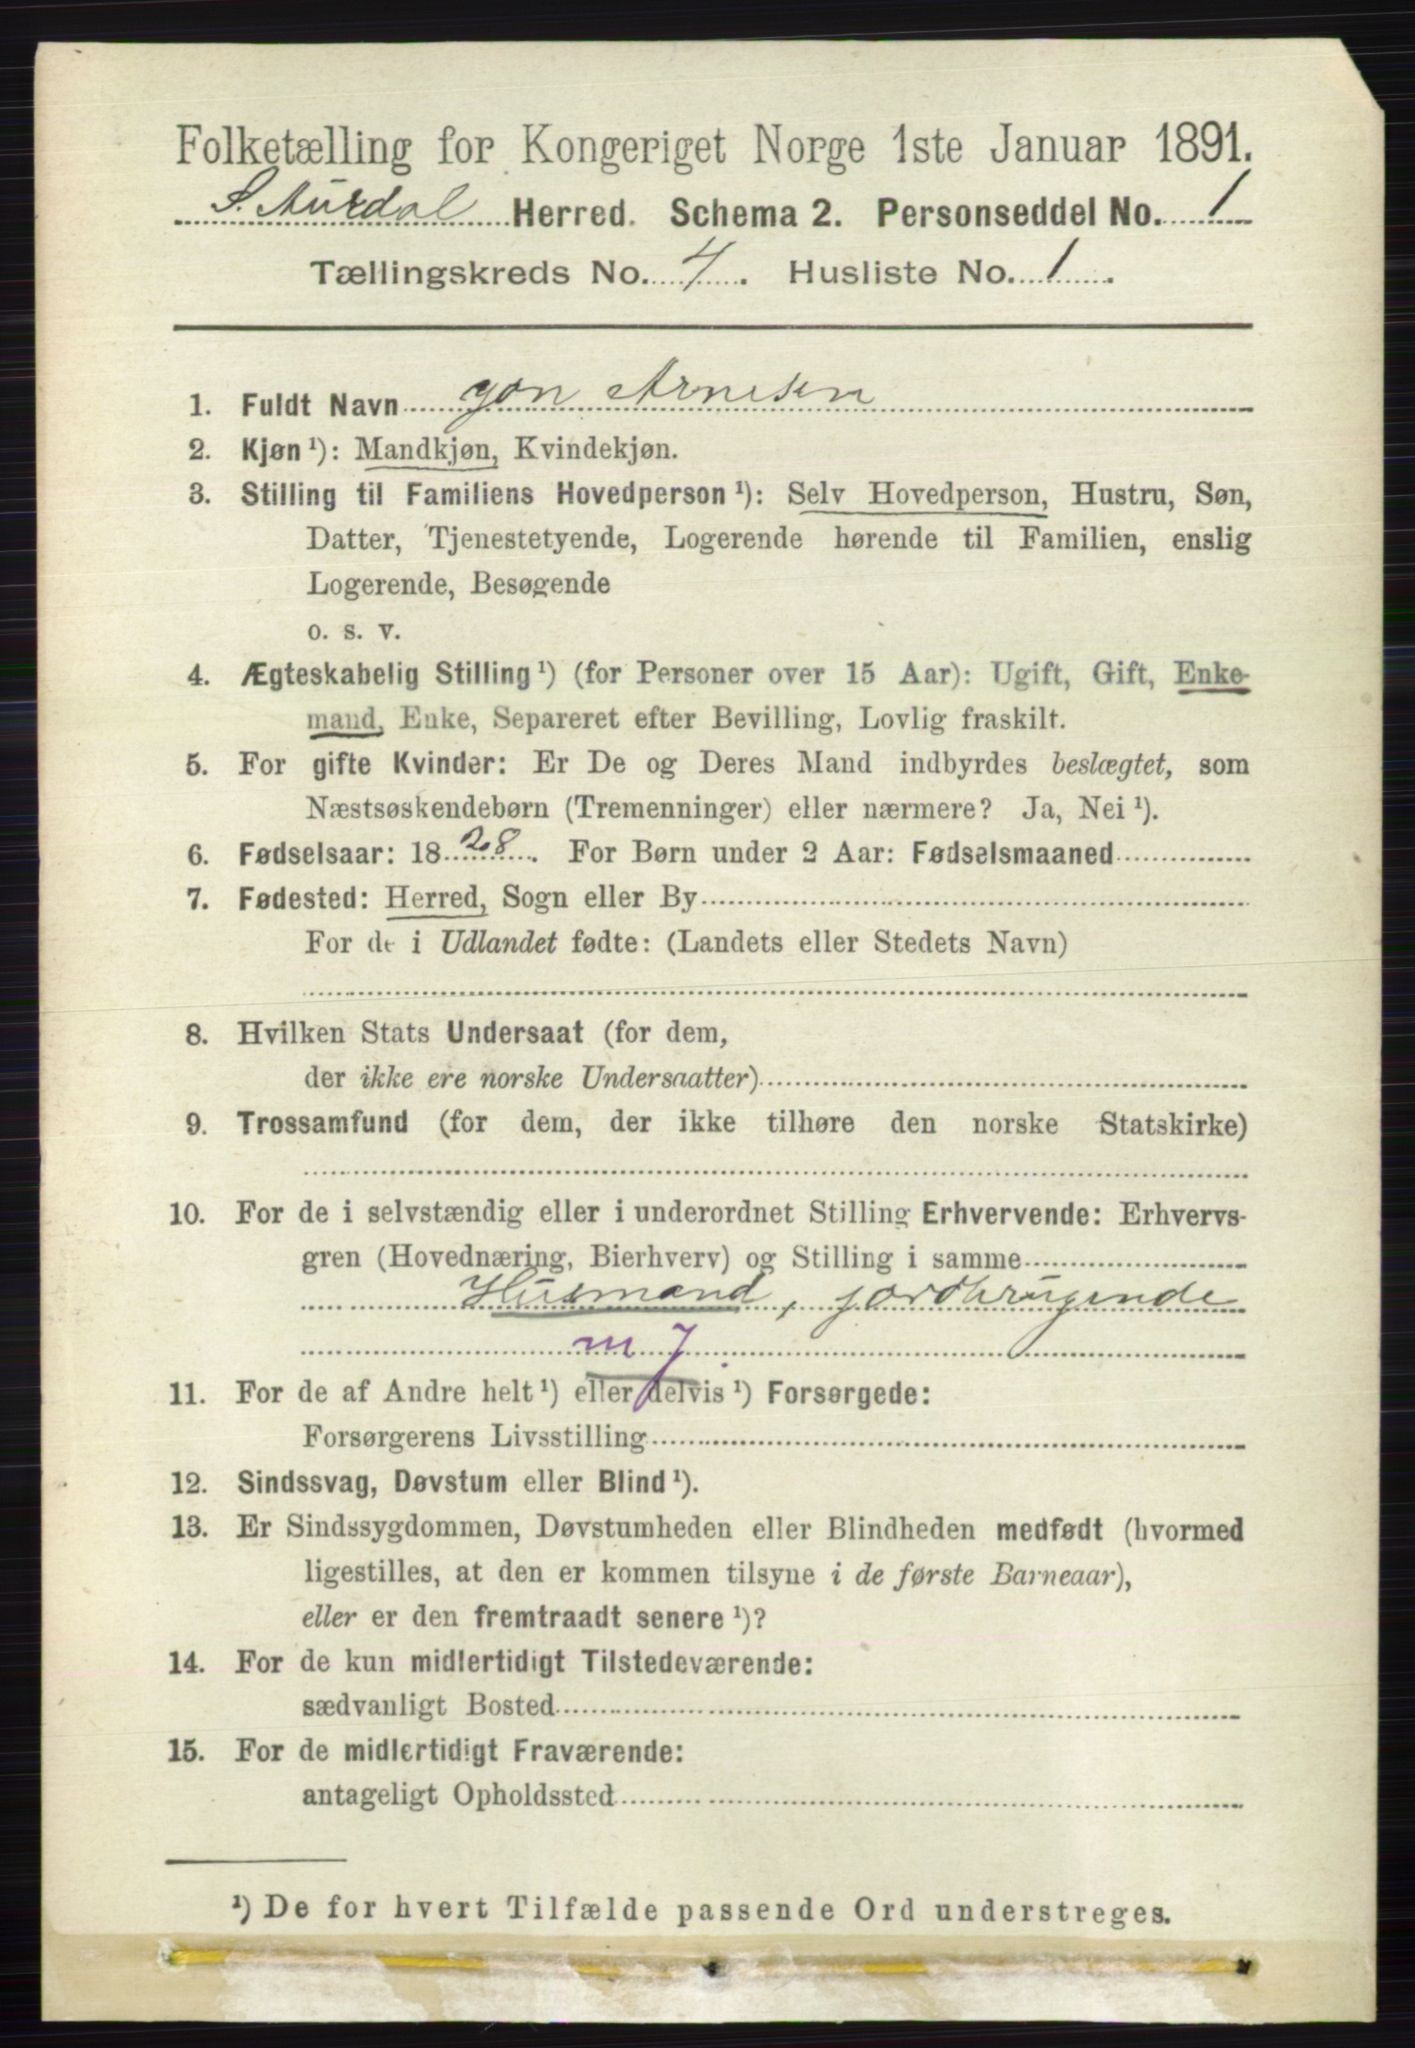 Folketælling for Kongeriget Norge 1ste Januar 1891.
S. Aurdal Herred. Schema 2. Personseddel No. 1
Tællingskreds No. 4. Husliste No. 1.
1. Fuldt Navn Jon Arnesen
2. Kjøn ¹): Mandkjøn, Kvindekjøn.
3. Stilling til Familiens Hovedperson ¹): Selv Hovedperson, Hustru, Søn,
Datter, Tjenestetyende, Logerende hørende til Familien, enslig
Logerende, Besøgende
o. s. v.
4. Ægteskabelig Stilling ¹) (for Personer over 15 Aar): Ugift, Gift, Enke-
mand, Enke, Separeret efter Bevilling, Lovlig fraskilt.
5. For gifte Kvinder: Er De og Deres Mand indbyrdes beslægtet, som
Næstsøskendebørn (Tremenninger) eller nærmere? Ja, Nei ¹).
6. Fødselsaar: 1828. For Børn under 2 Aar: Fødselsmaaned
7. Fødested: Herred, Sogn eller By
For de i Udlandet fødte: (Landets eller Stedets Navn)
8. Hvilken Stats Undersaat (for dem,
der ikke ere norske Undersaatter)
9. Trossamfund (for dem, der ikke tilhøre den norske Statskirke)
10. For de i selvstændig eller i underordnet Stilling Erhvervende: Erhvervs-
gren (Hovednæring, Bierhverv) og Stilling i samme
Husmand, jordbrugende
m J
11. For de af Andre helt ¹) eller delvis ¹) Forsørgede:
Forsørgerens Livsstilling
12. Sindssvag, Døvstum eller Blind ¹).
13. Er Sindssygdommen, Døvstumheden eller Blindheden medfødt (hvormed
ligestilles, at den er kommen tilsyne i de første Barneaar),
eller er den fremtraadt senere ¹)?
14. For de kun midlertidigt Tilstedeværende:
sædvanligt Bosted
15. For de midlertidigt Fraværende:
antageligt Opholdssted
¹) De for hvert Tilfælde passende Ord understreges.